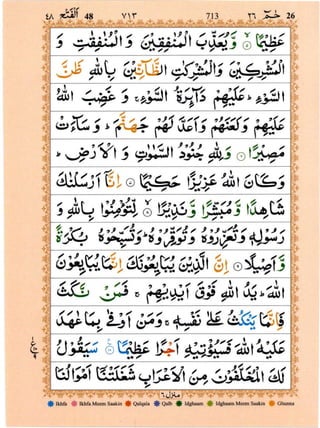 ٤٨ الفتح 48 ٧١٣ 713 ٢٦ حٰمٓ 26
عَظِيْمًا ۙ۝ وَّ يُعَذِّبَ الْمُنٰفِقِيْنَ وَ الْمُنٰفِقٰتِ وَ
الْمُشْرِكِيْنَ وَ الْمُشْرِكٰتِ الظَّآنِّيْنَ بِاللّٰهِ ظَنَّ
السَّوْءِ ؕ عَلَيْهِمْ دَآىِٕرَةُ السَّوْءِ ۚ وَ غَضِبَ اللّٰهُ
عَلَيْهِمْ وَ لَعَنَهُمْ وَ اَعَدَّ لَهُمْ جَهَنَّمَ ؕ وَ سَآءَتْ
مَصِيْرًا ۝ وَ لِلّٰهِ جُنُوْدُ السَّمٰوٰتِ وَ الْاَرْضِ ؕ
وَ كَانَ اللّٰهُ عَزِيْزًا حَكِيْمًا ۝ اِنَّاۤ اَرْسَلْنٰكَ
شَاهِدًا وَّ مُبَشِّرًا وَّ نَذِيْرًا ۙ۝ لِّتُؤْمِنُوْا بِاللّٰهِ وَ
رَسُوْلِهٖ وَ تُعَزِّرُوْهُ وَ تُوَقِّرُوْهُ ؕ وَ تُسَبِّحُوْهُ بُكْرَةً
وَّ اَصِيْلًا ۝ اِنَّ الَّذِيْنَ يُبَايِعُوْنَكَ اِنَّمَا يُبَايِعُوْنَ
اللّٰهَ ؕ يَدُ اللّٰهِ فَوْقَ اَيْدِيْهِمْ ۚ فَمَنْ نَّكَثَ
فَاِنَّمَا يَنْكُثُ عَلٰى نَفْسِهٖ ۚ وَ مَنْ اَوْفٰى بِمَا عٰهَدَ
عَلَيْهُ اللّٰهَ فَسَيُؤْتِيْهِ اَجْرًا عَظِيْمًا ۝ سَيَقُوْلُ
لَكَ الْمُخَلَّفُوْنَ مِنَ الْاَعْرَابِ شَغَلَتْنَاۤ اَمْوَالُنَا
منزل ٦
Ikhfa Ikhfa Meem Saakin Qalqala Qalb Idghaam Idghaam Meem Saakin Ghunna